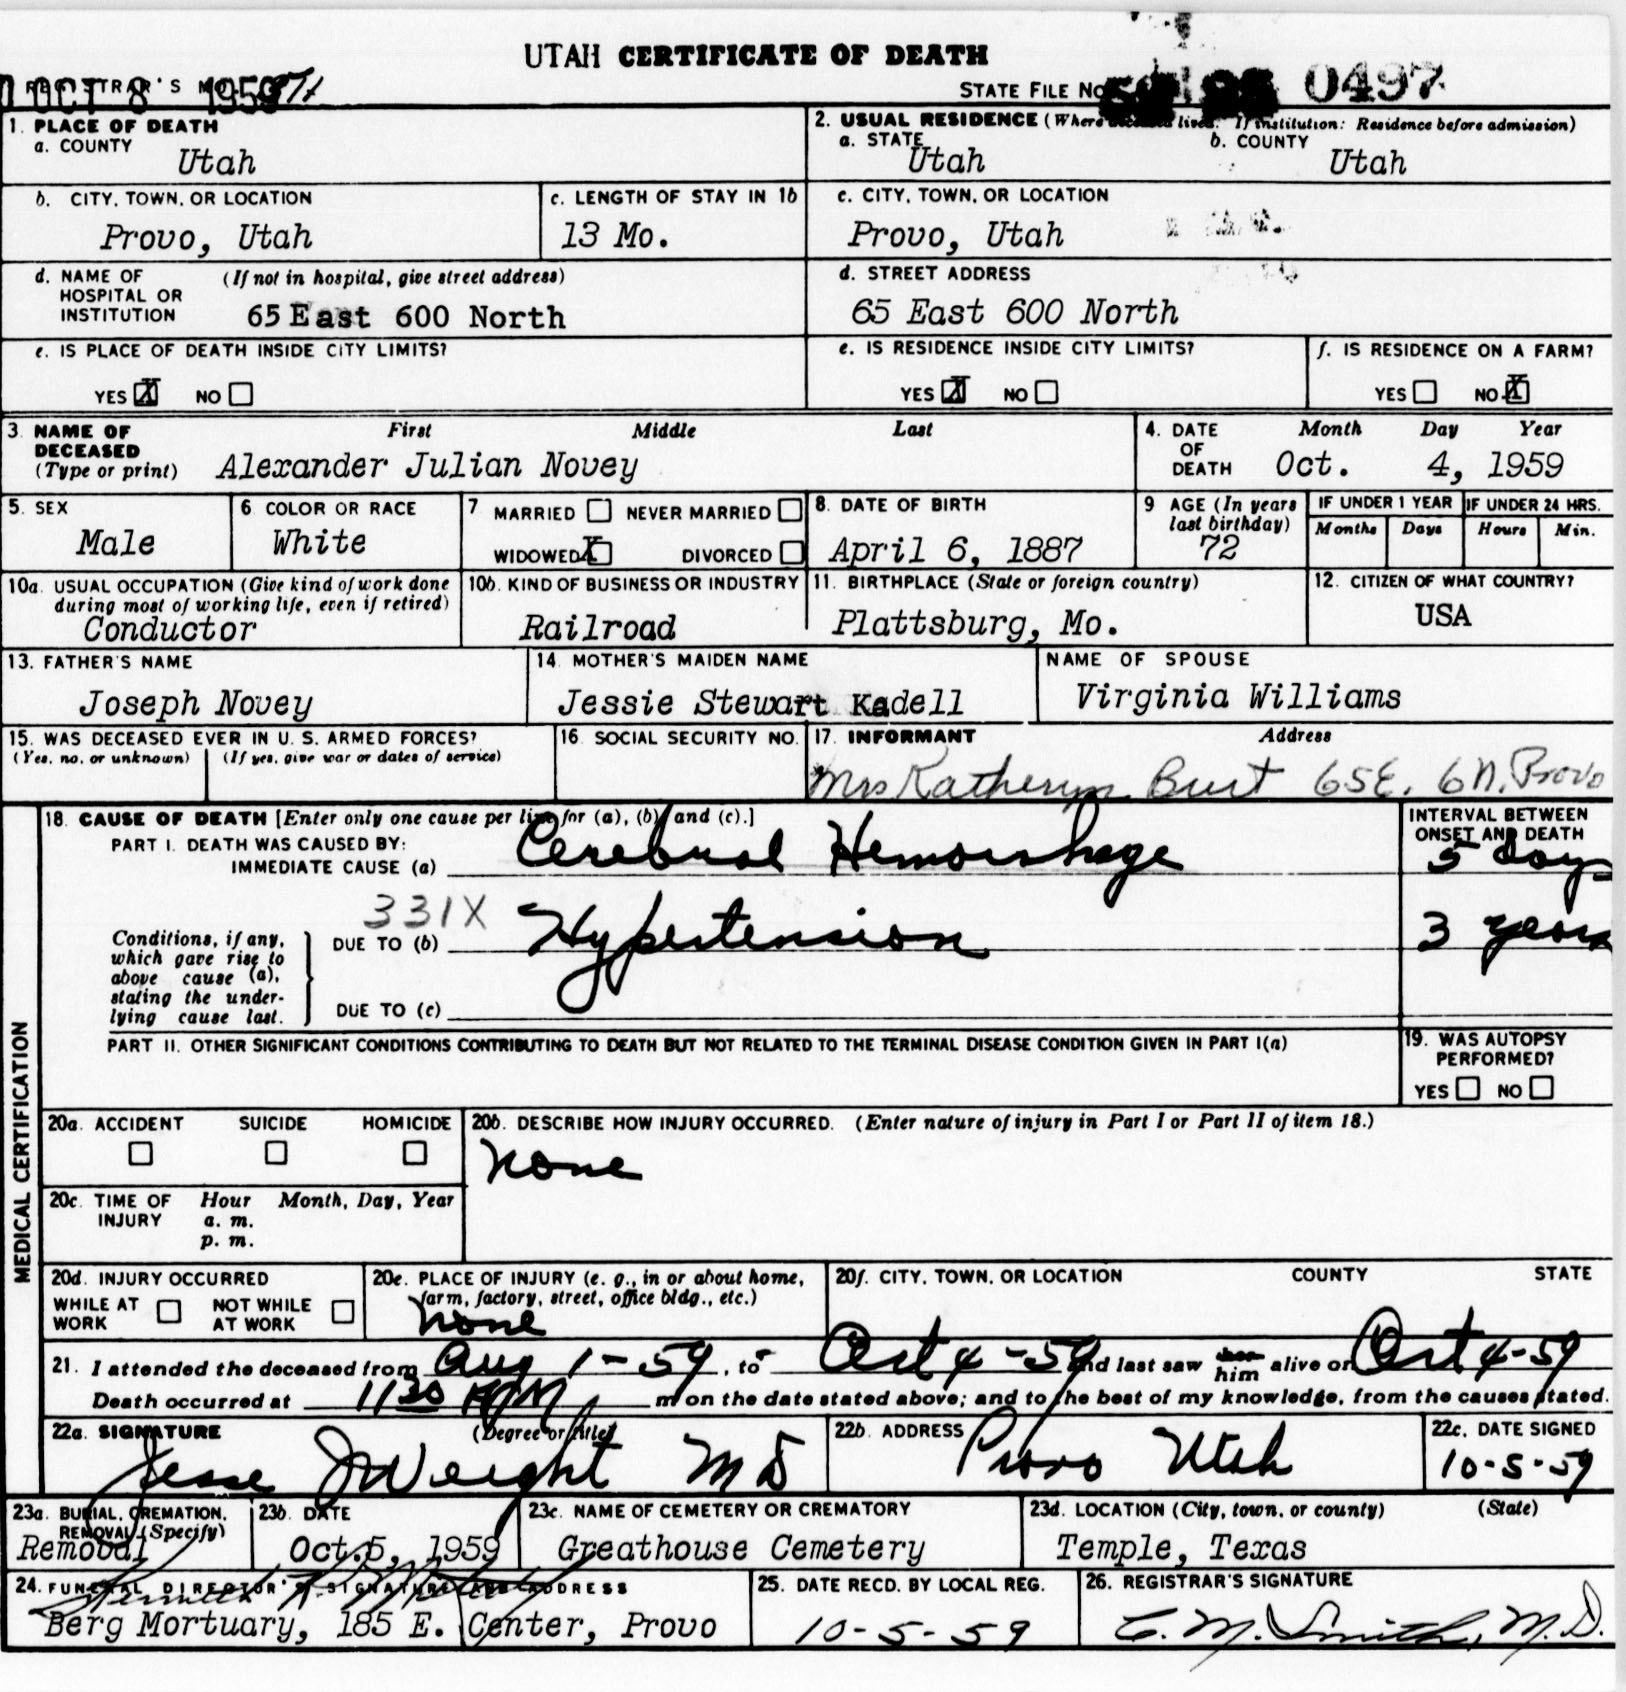 UTAH CERTIFICATE OF DEATH
REGISTRAR'S
OCT 8 1959
STATE FILE No. 0497
1. PLACE OF DEATH
a. COUNTY
Utah
2. USUAL RESIDENCE (Where deceased lived. If institution: Residence before admission)
a. STATE
Utah
b. COUNTY
Utah
b. CITY, TOWN, OR LOCATION
Provo, Utah
c. LENGTH OF STAY IN 1b
13 Mo.
c. CITY, TOWN, OR LOCATION
Provo, Utah
d. NAME OF (If not in hospital, give street address)
HOSPITAL OR
INSTITUTION
65 East 600 North
d. STREET ADDRESS
65 East 600 North
e. IS PLACE OF DEATH INSIDE CITY LIMITS?
YES X NO
e. IS RESIDENCE INSIDE CITY LIMITS?
YES X NO
f. IS RESIDENCE ON A FARM?
YES NO X
3. NAME OF
DECEASED
(Type or print)
First Middle Last
Alexander Julian Novey
4. DATE
OF
DEATH
Month Day Year
Oct. 4, 1959
5. SEX
Male
6. COLOR OR RACE
White
7. MARRIED NEVER MARRIED
WIDOWED X DIVORCED
8. DATE OF BIRTH
April 6, 1887
9. AGE (In years
last birthday)
72
IF UNDER 1 YEAR
Months Days
IF UNDER 24 HRS.
Hours Min.
10a. USUAL OCCUPATION (Give kind of work done
during most of working life, even if retired)
Conductor
10b. KIND OF BUSINESS OR INDUSTRY
Railroad
11. BIRTHPLACE (State or foreign country)
Plattsburg, Mo.
12. CITIZEN OF WHAT COUNTRY?
USA
13. FATHER'S NAME
Joseph Novey
14. MOTHER'S MAIDEN NAME
Jessie Stewart Kadell
NAME OF SPOUSE
Virginia Williams
15. WAS DECEASED EVER IN U. S. ARMED FORCES?
(Yes, no, or unknown) (If yes, give war or dates of service)
16. SOCIAL SECURITY NO.
17. INFORMANT Address
Mrs Katheryn Burt 65E. 6N. Provo
MEDICAL CERTIFICATION
18. CAUSE OF DEATH [Enter only one cause per line for (a), (b), and (c).]
PART I. DEATH WAS CAUSED BY:
IMMEDIATE CAUSE (a)
Cerebral Hemorrhage
INTERVAL BETWEEN
ONSET AND DEATH
5 days
331X
Conditions, if any,
which gave rise to
above cause (a),
stating the under-
lying cause last.
DUE TO (b)
Hypertension
3 years
DUE TO (c)
PART II. OTHER SIGNIFICANT CONDITIONS CONTRIBUTING TO DEATH BUT NOT RELATED TO THE TERMINAL DISEASE CONDITION GIVEN IN PART I(a)
19. WAS AUTOPSY
PERFORMED?
YES NO
20a. ACCIDENT SUICIDE HOMICIDE
20b. DESCRIBE HOW INJURY OCCURRED. (Enter nature of injury in Part I or Part II of item 18.)
None
20c. TIME OF
INJURY
Hour Month, Day, Year
a. m.
p. m.
20d. INJURY OCCURRED
WHILE AT
WORK
NOT WHILE
AT WORK
20e. PLACE OF INJURY (e. g., in or about home,
farm, factory, street, office bldg., etc.)
None
20f. CITY, TOWN, OR LOCATION COUNTY STATE
21. I attended the deceased from Aug 1-59, to Oct 4-59 and last saw her him alive on Oct 4-59
Death occurred at 11 30 m on the date stated above; and to the best of my knowledge, from the causes stated.
22a. SIGNATURE (Degree or title)
Jesse J Weight MD
22b. ADDRESS
Provo Utah
22c. DATE SIGNED
10-5-59
23a. BURIAL, CREMATION,
REMOVAL (Specify)
Removal
23b. DATE
Oct. 5, 1959
23c. NAME OF CEMETERY OR CREMATORY
Greathouse Cemetery
23d. LOCATION (City, town, or county) (State)
Temple, Texas
24. FUNERAL DIRECTOR'S SIGNATURE AND ADDRESS
Berg Mortuary, 185 E. Center, Provo
25. DATE RECD. BY LOCAL REG.
10-5-59
26. REGISTRAR'S SIGNATURE
C. M. Smith, M.D.